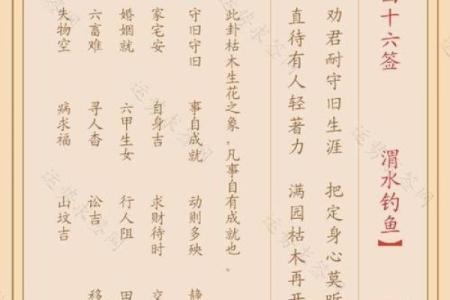 十六签 渭水钓鱼】
劝君耐守旧生涯 把定身心莫
直待有人轻著力 满园枯木再开
此卦枯木生花之象,凡事自有成就也。
守旧守旧 事自成就 动则多殃 静
家宅安 自身吉 求财待时 交
婚姻就 六甲生女 行人阻 田
六畜难 寻人杳 讼吉 移
失物空 病求福 山坟吉